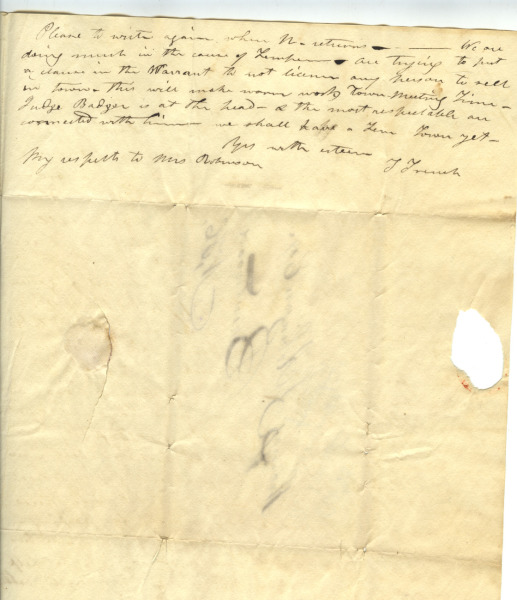 Please to write again when N. returns — — We are
doing much in the cause of Temper— are trying to put
a clause in the Warrant to not licence any person to sell
in Town — this will make warm work Town Meeting Time —
Judge Badger is at the head — & the most respectable are
connected with him — we shall have a Tem Town yet —
Yrs with esteem
My respects to Mrs Robinson
T French